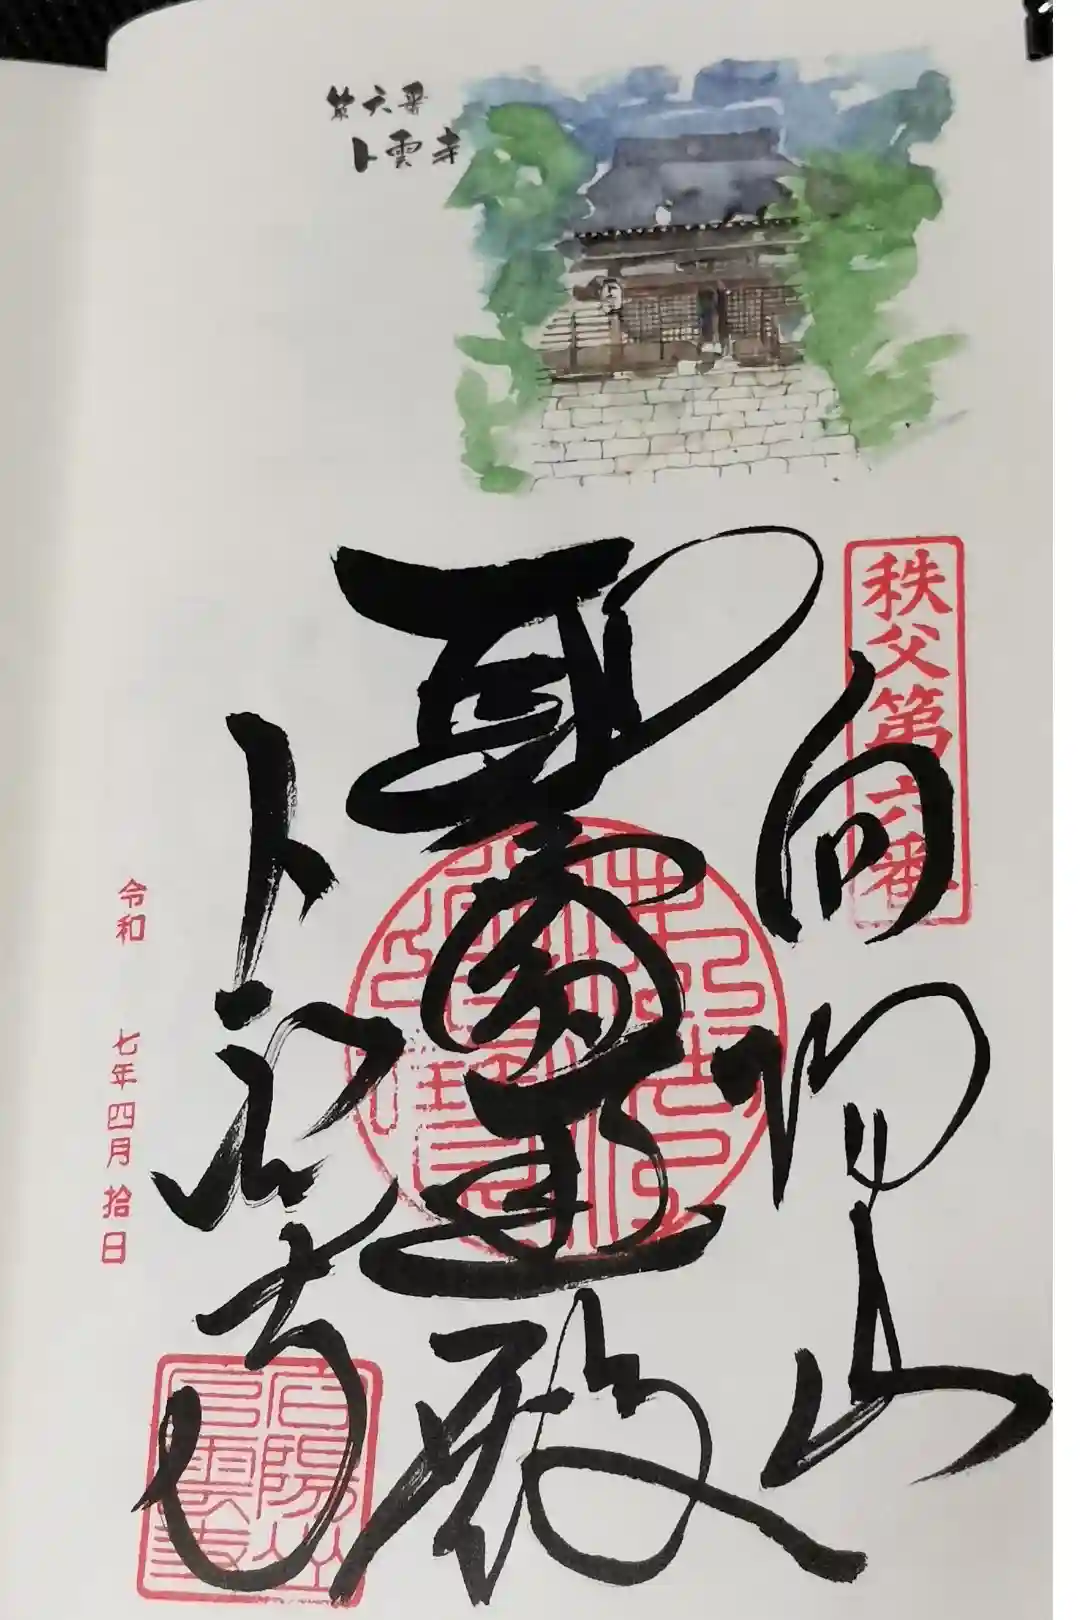 第六番
卜雲寺
秩父第六番
向陽山
卜雲寺
令和 七年四月拾日
向陽山
卜雲寺